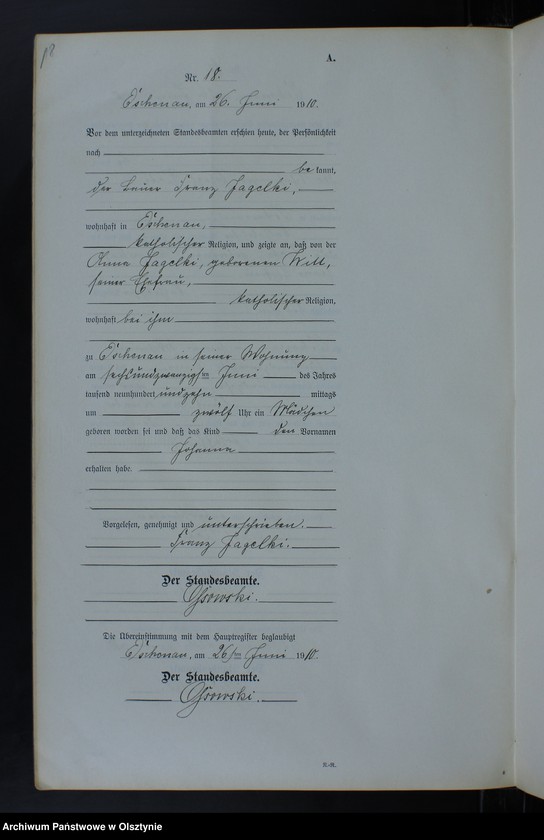 18
A.
Nr. 18.
Eschenau, am 26. Juni 1910.
Vor dem unterzeichneten Standesbeamten erschien heute, der Persönlichkeit
nach
be kannt,
der Bauer Franz Jagelki,
wohnhaft in Eschenau,
katholischer Religion, und zeigte an, daß von der
Anna Jagelki, geborenen Witt,
seiner Ehefrau,
katholischer Religion,
wohnhaft bei ihm
zu Eschenau in seiner Wohnung
am sechsundzwanzigsten Juni des Jahres
tausend neunhundert undzehn mittags
um zwölf Uhr ein Mädchen
geboren worden sei und daß das Kind den Vornamen
Johanna
erhalten habe.
Vorgelesen, genehmigt und unterschrieben.
Franz Jagelki.
Der Standesbeamte.
Ossowski.
Die Übereinstimmung mit dem Hauptregister beglaubigt
Eschenau, am 26ten Juni 1910.
Der Standesbeamte.
Ossowski.
Archiwum Państwowe w Olsztynie